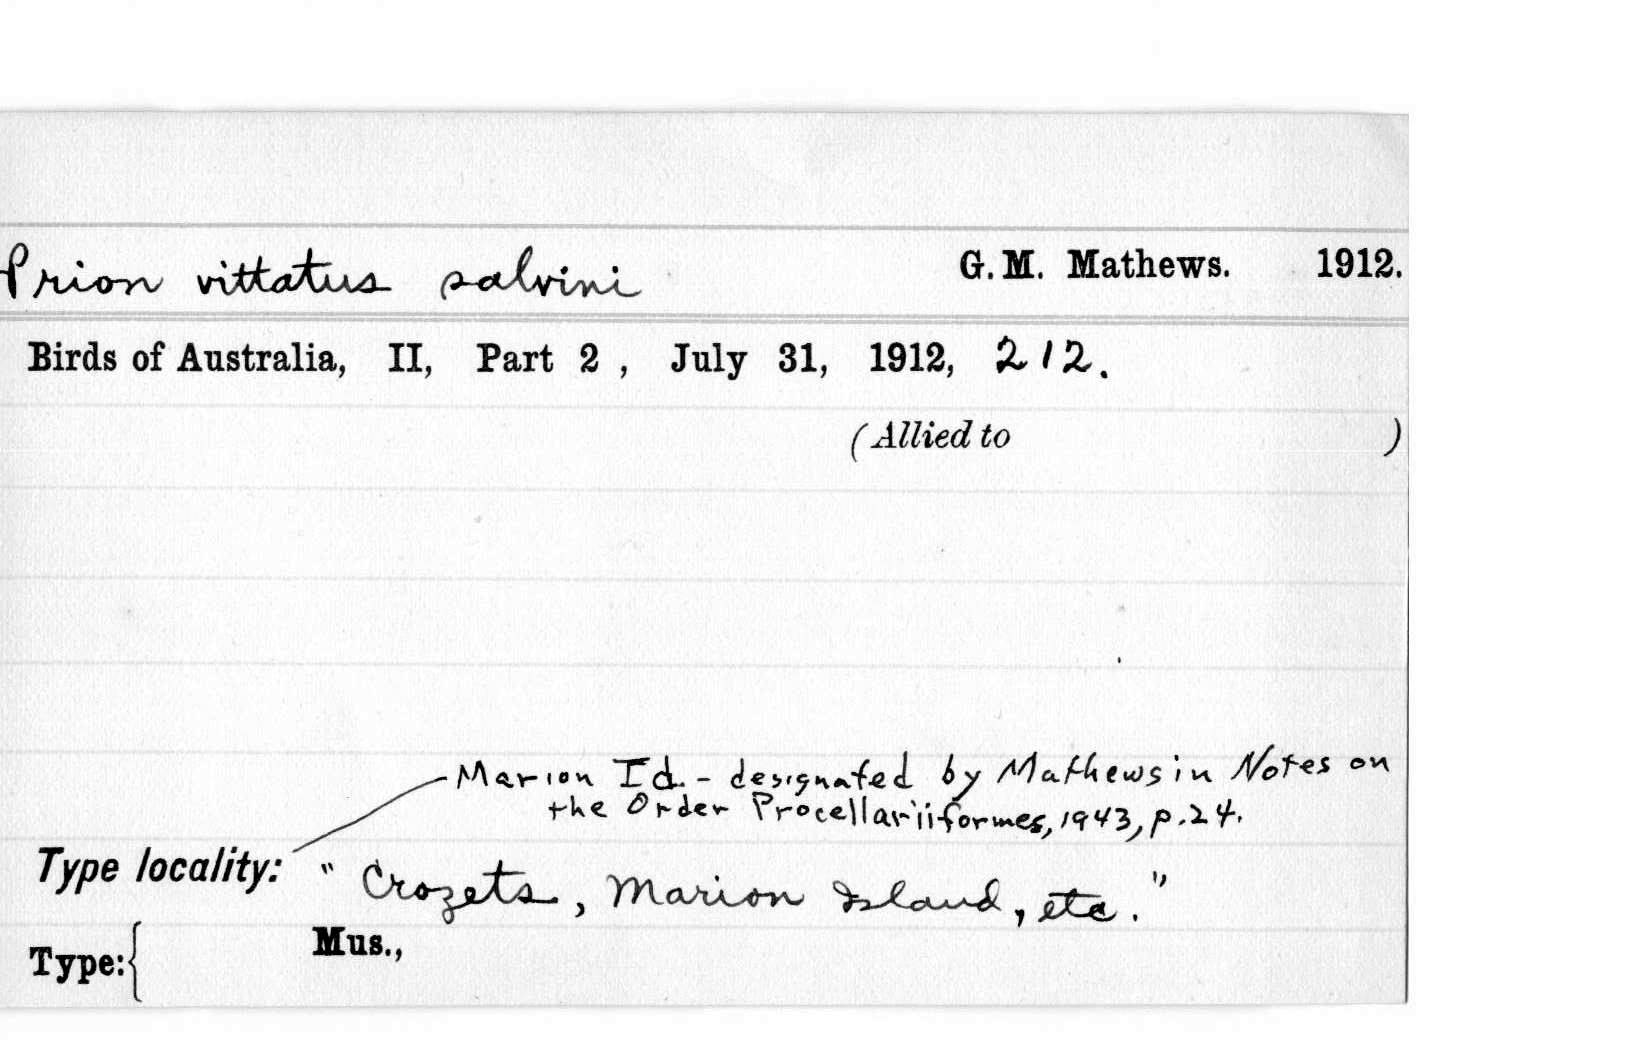 Prion vittatus salvini G. M. Mathews. 1912.
Birds of Australia, II, Part 2 , July 31, 1912, 212.
(Allied to )
Marion Id. - designated by Mathews in Notes on
the Order Procellariiformes, 1943, p.24.
Type locality: "Crozets, Marion Island, etc."
Type:{ Mus.,